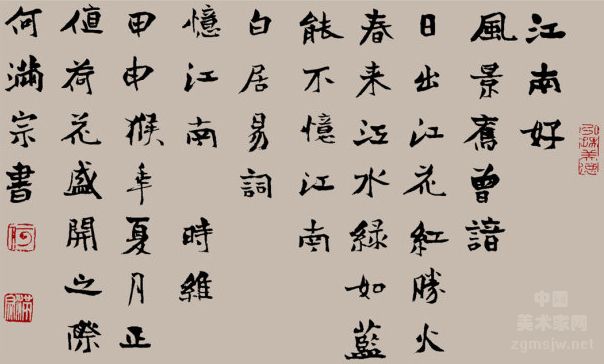 江南好
風景舊曾諳
日出江花紅勝火
春来江水緑如藍
能不憶江南
白居易詞
憶江南 時維
甲申猴年夏月正
值荷花盛開之際
何滿宗書
中国
美术家网
zgmsjw.net